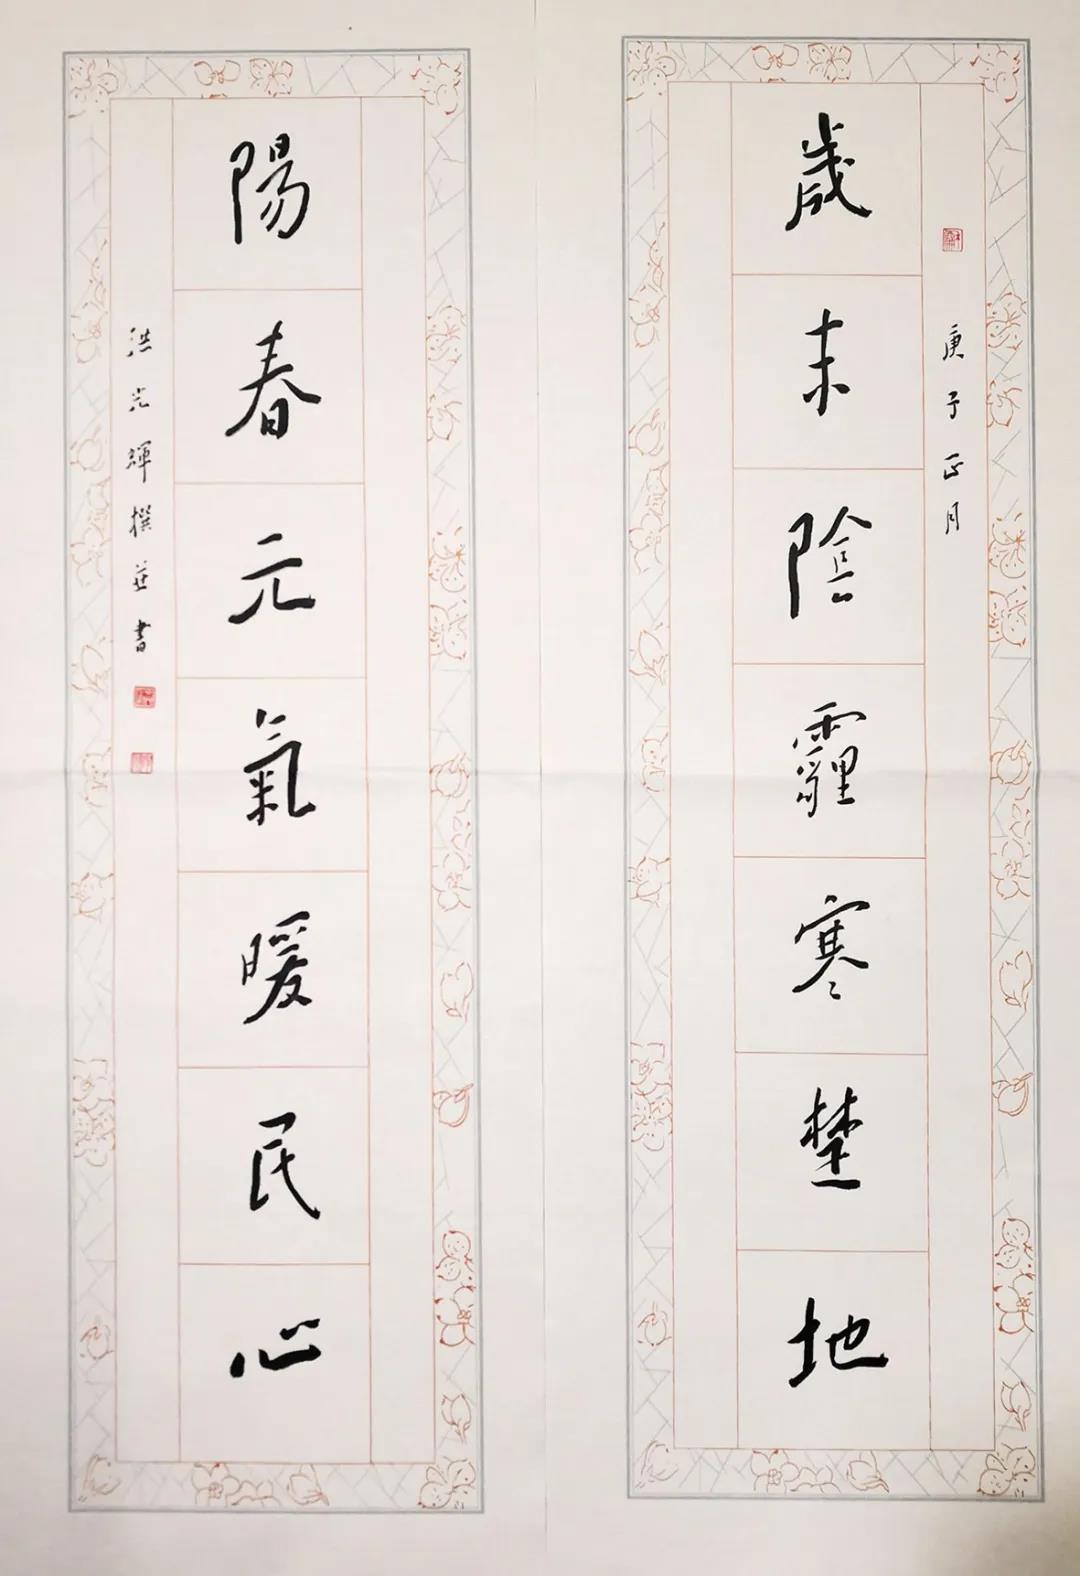 庚子正月
歲末陰霾寒楚地
陽春元氣暖民心
洪光輝撰並書